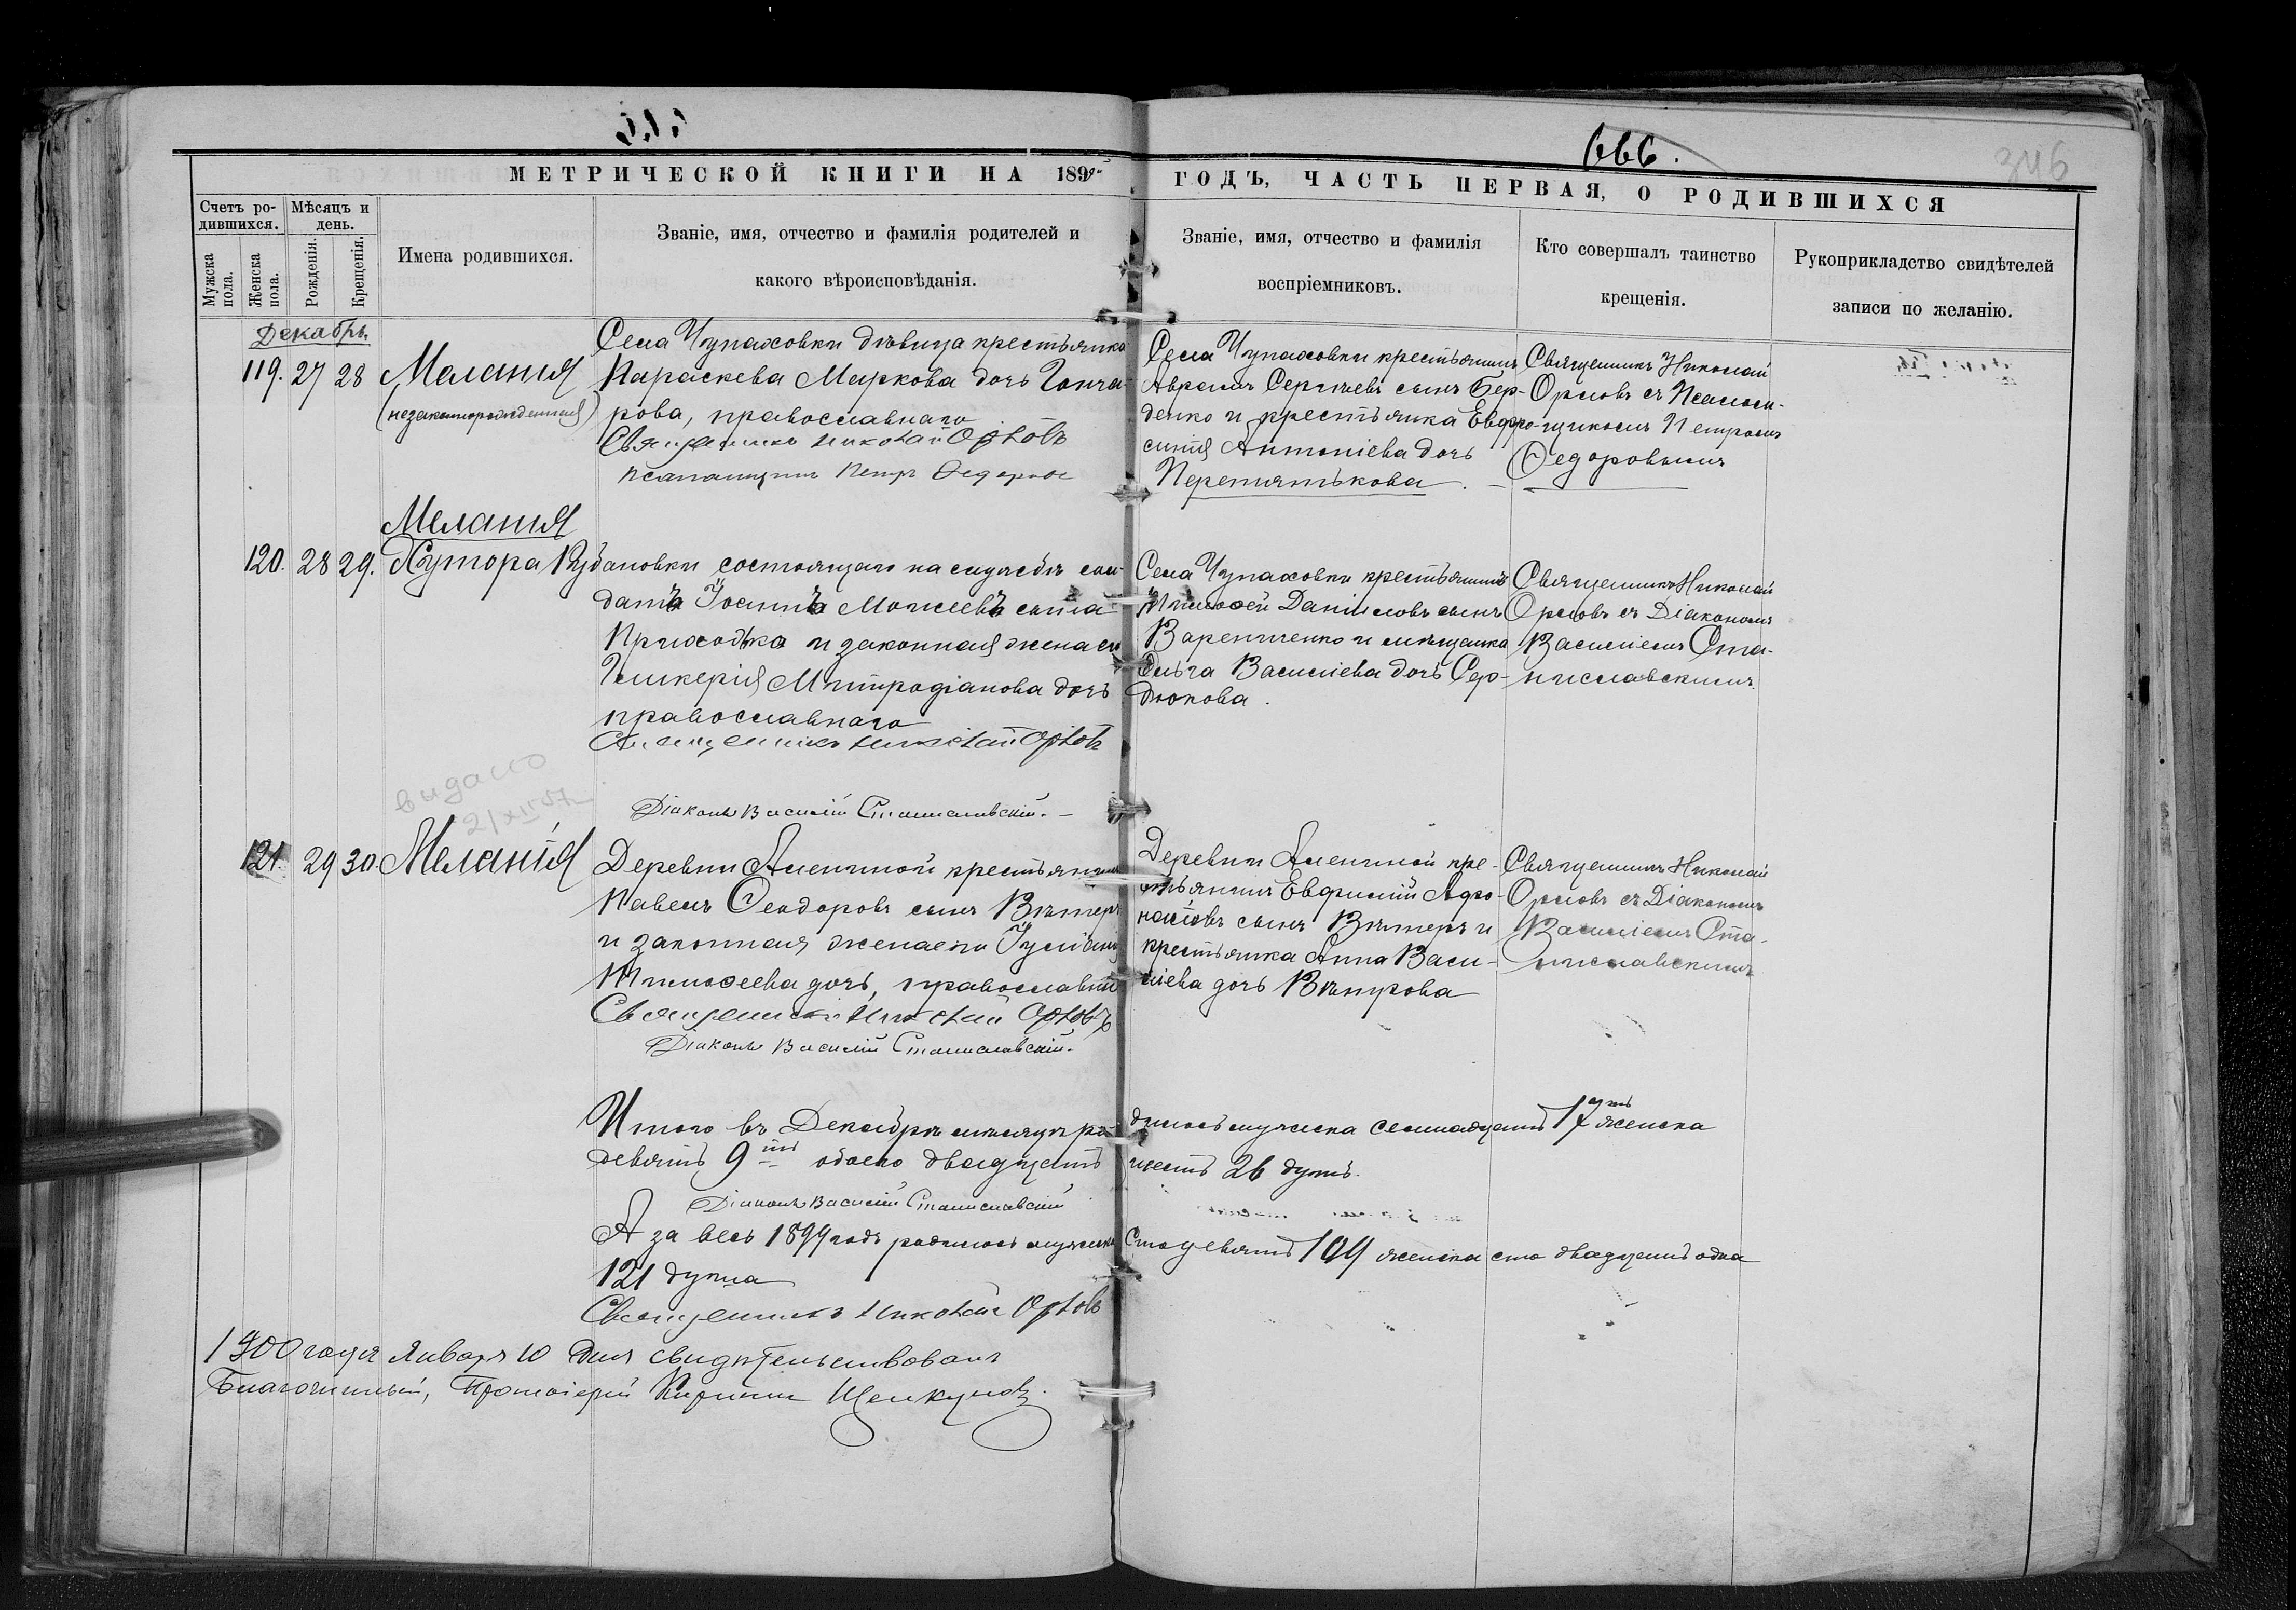 666.
346
МЕТРИЧЕСКОЙ КНИГИ НА 1899
ГОДЪ, ЧАСТЬ ПЕРВАЯ, О РОДИВШИХСЯ
Счетъ ро-
дившихся.
Мѣсяцъ и
день.
Мужска
пола.
Женска
пола.
Рожденія.
Крещенія.
Имена родившихся.
Званіе, имя, отчество и фамилія родителей и
какого вѣроисповѣданія.
Званіе, имя, отчество и фамилія
воспріемниковъ.
Кто совершалъ таинство
крещенія.
Рукоприкладство свидѣтелей
записи по желанію.
Декабрь
119. 27 28 Меланія
(незаконнорожденная)
Села Чупаховки дѣвица крестьянка
Параскева Маркова дочь Гонча-
рова, православнаго
Священникъ Николай Орловъ
Псаломщикъ Петръ Федоровъ
Села Чупаховки крестьянинъ
Аврамъ Сергѣевъ сынъ Бер-
денко и крестьянка Евфро-
синія Антоніева дочь
Перепятькова.
Священникъ Николай
Орловъ съ Псалом-
щикомъ Петромъ
Федоровымъ
Меланія
120. 28 29. Хутора Кубановки состоящаго на службѣ сол-
дата Іоанна Моисеева сына
Приходька и законная жена его
Гликерія Митродіанова дочь
православнаго
Священникъ Николай Орловъ
Діаконъ Василій Станиславскій.
Села Чупаховки крестьянинъ
Тимофей Даніиловъ сынъ
Варениченко и мѣщанка
Ольга Василіева дочь Сер-
дюкова.
Священникъ Николай
Орловъ съ Діакономъ
Василіемъ Ста-
ниславскимъ.
видано
21/XII 57
121. 29 30. Меланія
Деревни Аленчной крестьянинъ
Павелъ Феодоровъ сынъ Вѣтеръ
и законная жена его Іуліанія
Тимофеева дочь, православн
Священникъ Николай Орловъ
Діаконъ Василій Станиславскій.
Деревни Аленчной кре-
стьянинъ Евфимій Афо-
насіевъ сынъ Вѣтеръ и
крестьянка Анна Васи-
ліева дочь Вѣтрова
Священникъ Николай
Орловъ съ Діакономъ
Василіемъ Ста-
ниславскимъ
Итого въ Декабрѣ мѣсяцѣ ро-дилось мужеска семнадцать 17ть женска
девять 9ть обоего двадцать шесть 26 душъ.
Діаконъ Василій Станиславскій
А за весь 1899 годъ родилось мужеска сто девять 109 женска сто двадцать одна
121 душа
Священникъ Николай Орловъ
1900 года Января 10 дня свидѣтельствовалъ
Благочинный, Протоіерей Щелкуновъ.